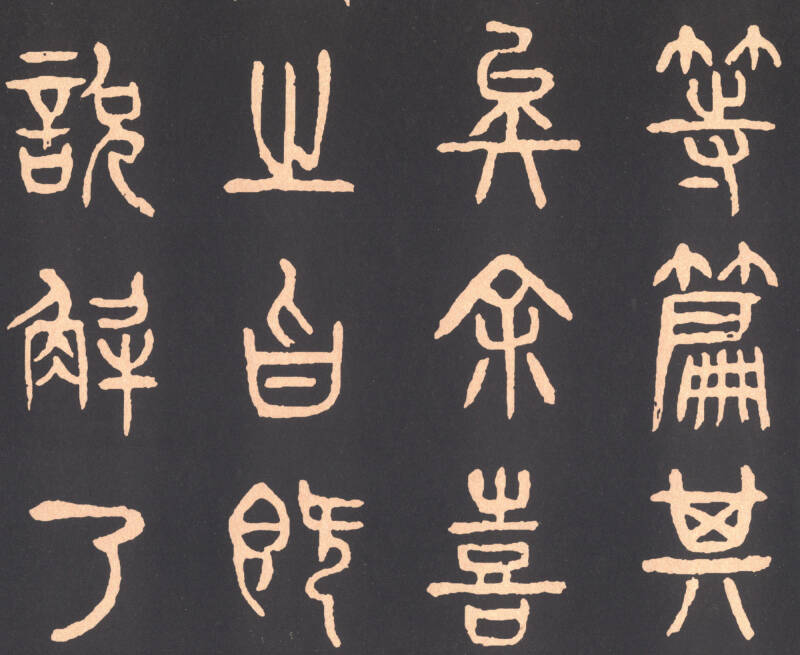 等篇其
奐余喜
之自既
說解了